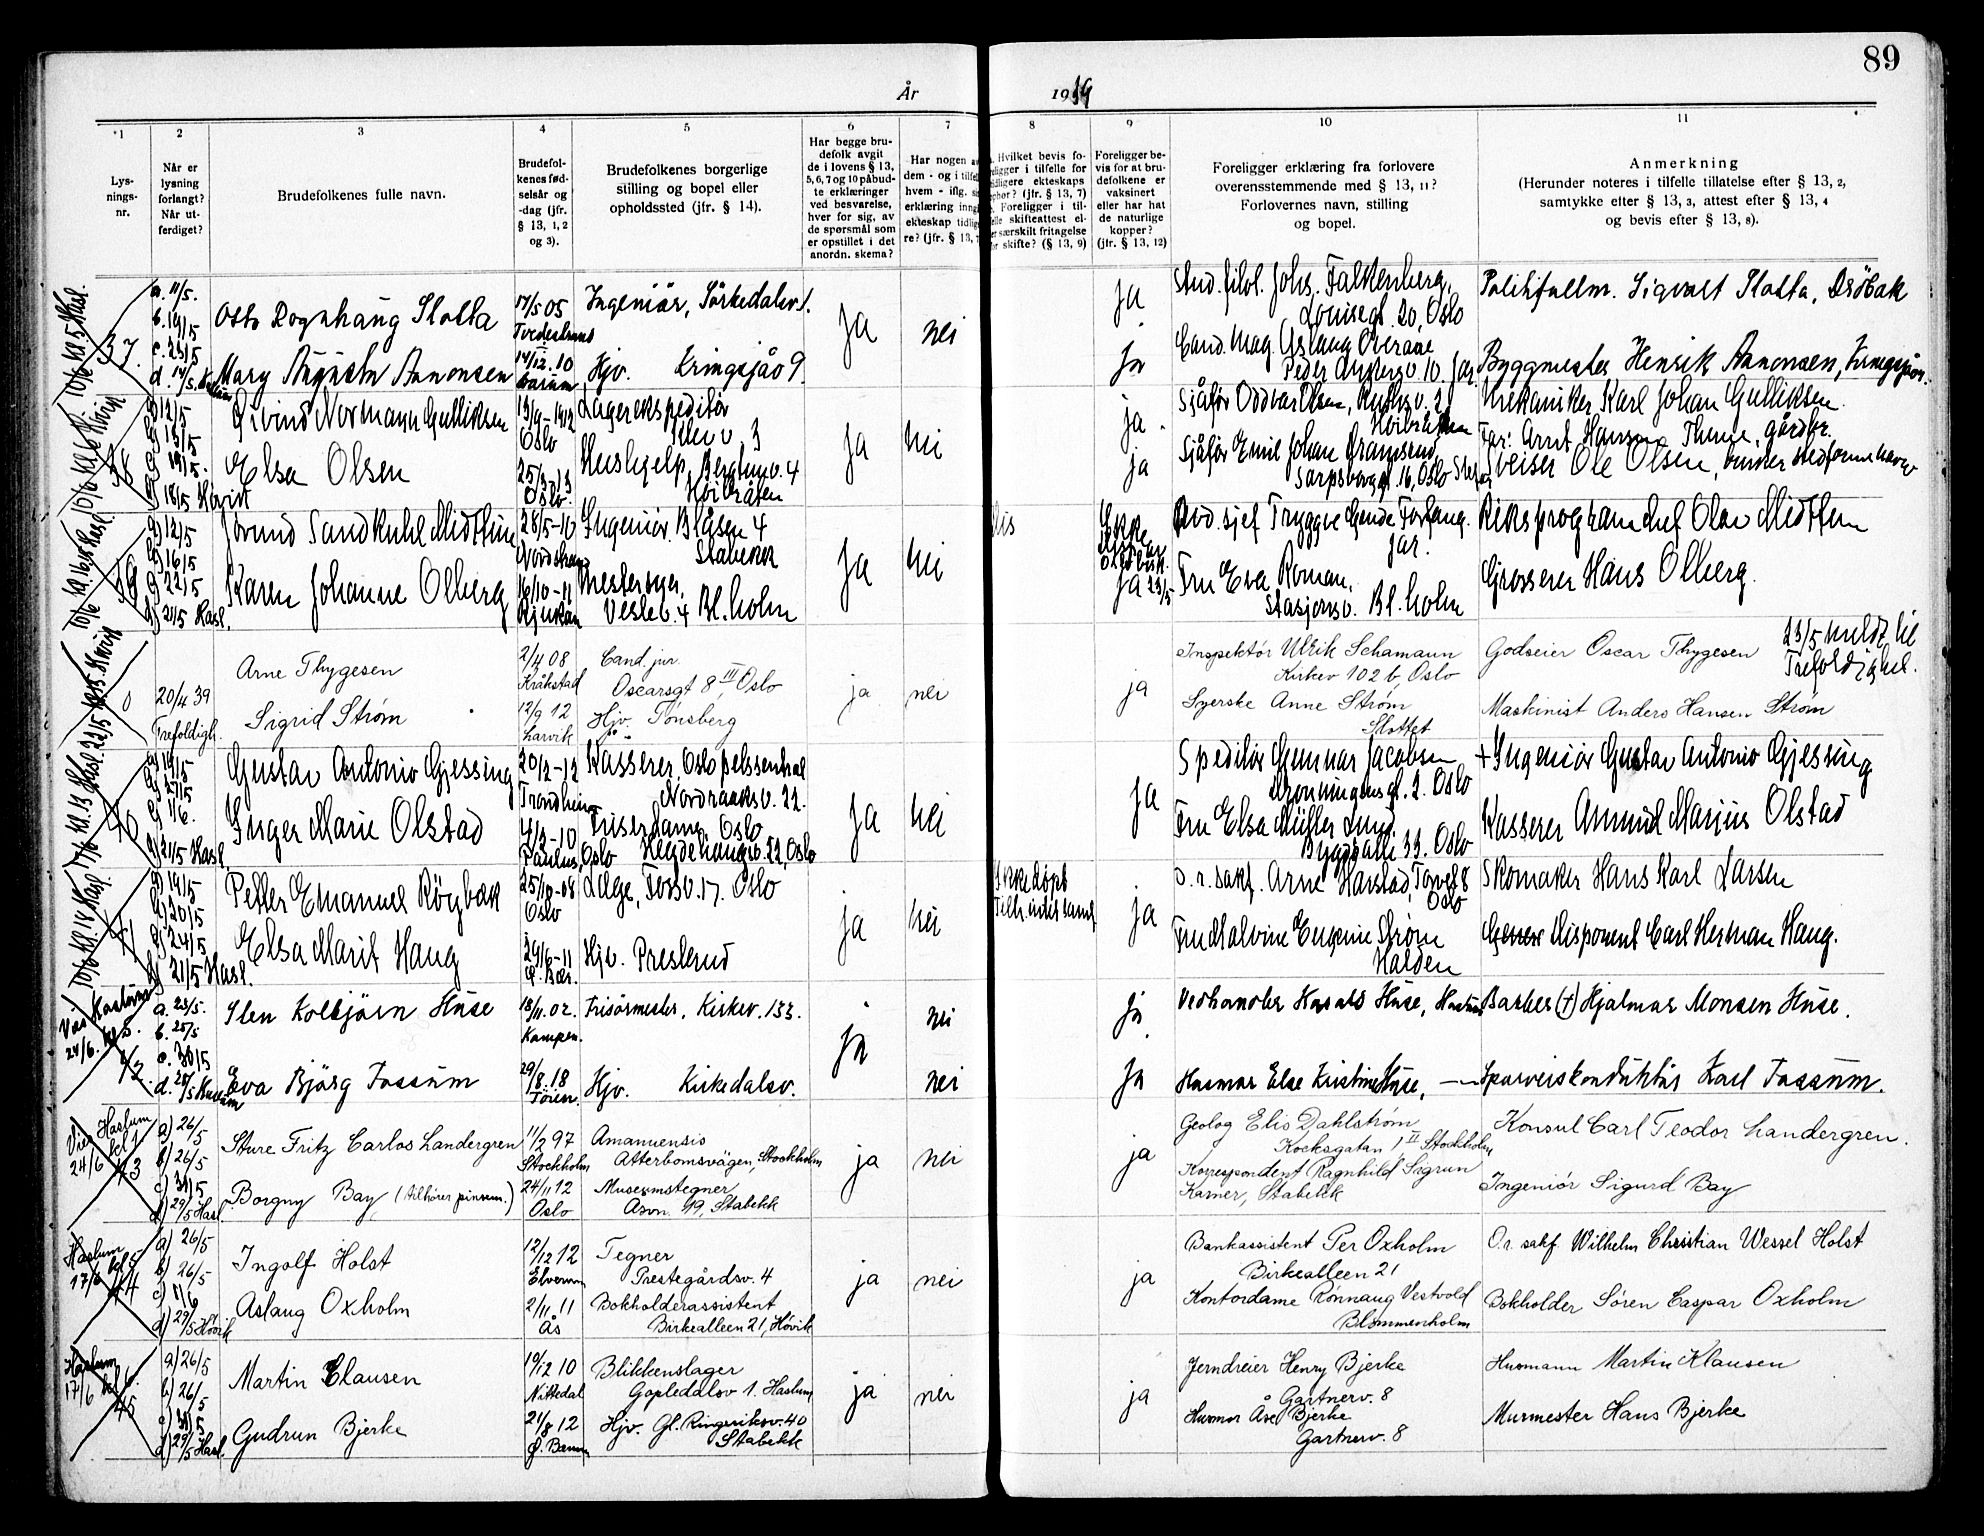 89
År
1939
*1
2
3
4
5
6
7
8
9
10
11
Lys-
nings-
nr.
Når er
lysning
forlangt?
Når ut-
ferdiget?
Brudefolkenes fulle navn.
Brudefol-
kenes fød-
selsår og
-dag (jfr.
§ 13, 1, 2
og 3).
Brudefolkenes borgerlige
stilling og bopel eller
opholdssted (jfr. § 14).
Har begge bru-
defolk avgit
de i lovens § 13,
5, 6, 7 og 10 påbud-
te erklæringer
ved besvarelse,
hver for sig, av
de spørsmål som
er opstillet i det
anordn. skema?
Har nogen av
dem - og i tilfelle
hvem - iflg.
erklæring inng
ekteskap tidlige
re? (jfr. § 13, 7
Hvilket bevis fo-
religger i tilfelle for
tidligere ekteskaps
ophør? (jfr. § 13, 7)
Foreligger i til-
felle skifteattest el-
ler særskilt fritagelse
for skifte? (§ 13, 9)
Foreligger be-
vis for at bru-
defolkene er
vaksinert
eller har hat
de naturlige
kopper?
(jfr. § 13, 12)
Foreligger erklæring fra forlovere
overensstemmende med § 13, 11?
Forlovernes navn, stilling
og bopel.
Anmerkning
(Herunder noteres i tilfelle tillatelse efter § 13, 2,
samtykke efter § 13, 3, attest efter § 13, 4
og bevis efter § 13, 8).
37.
a. 11/5.
b. 19/5
c. 23/5
d. 14/5.
Otto Rognhaug Slotta
17/5 05
Tvedestrand
Ingeniør, Sørkedalsv 1.
ja
nei
ja
Stud. filol. Johs. Falkenberg,
Louisegt. 20, Oslo
Politifullm. Sigvart Slotta, Drøbak
Mary Augusta Annonsen
14/12. 10
Bærum
Hjv. Kringsjåv 9.
ja
Cand. mag. Aslaug Overaae
Peder Ankersv 10. Jar
Byggmester Henrik Annonsen,
38
a) 12/5
b) 13/5
c) 19/5.
d) 18/5 Høvik
Øivind Normann Gulliksen
13/9-1912
Oslo
Lagerekspeditør
3
ja
nei
ja
Sjåfør Oddvar Olsen,
Høibråten
Mekaniker Karl Johan Gulliksen.
Elsa Olsen
25/3-13
Oslo.
Hushjelp, Berglundv. 4
Høibråten
ja
Sjåfør Emil Johan Bramsend,
Sarpsborggt. 16, Oslo
Far: Arnt Hansen Thune, gårdbr.
Sveiser Ole Olsen, bruker stedfarens navn
39
a) 12/5
b) 16/5
c) 22/5
d) 21/5 Hasl.
Jørund Sandkuhl Midttun
28/5-10
Nordstrand
Ingeniør. Blåsen 4
Stabekk
ja
nei
Ikke
ja 23/5
Avd. sjef Tryggve Gende Forfang.
Jar.
Riksprogramchef Olav Midttun
Karen Johanne Olberg
16/10-11
Rjukan
Mestersyer,
Veslev. 4 Bl. holm
Fru Eva Roman,
Stasjonsv. Bl. holm
Grosserer Hans Olberg.
0
20/4 39
Trefoldigh.
Arne Thygesen
2/4 08
Kråkstad
Cand. jur.
Oscarsgt 8 III, Oslo
ja
nei
ja
Inspektør Ulrik Schamaun
Kirkev 102 b, Oslo
Godseier Oscar Thygesen
23/5 meldt til
Trefoldighet.
Sigrid Strøm
12/9 12
Larvik
Hjv. Tønsberg
Syerske Anne Strøm
Slottet
Maskinist Anders Hansen Strøm
40
a) 19/5
b) 27/5
c) 1/6.
d) 21/5 Hasl
Gustav Antonio Gjessing
20/2-12
Trondheim
Kasserer, Oslo pelssentral
Nordraaksv. 22.
ja
nei
ja
Speditør Gunnar Jacobsen
Dronningensgt. 2. Oslo
+ Ingeniør Gustav Antonio Gjessing
Inger Marie Olstad
4/3-10
Paulus, Oslo
Friserdame, Oslo
Hegdehaugsv. 22, Oslo
Fru Elsa Müller Lund.
Bygdøalle 33. Oslo
Kasserer Amund Marius Olstad
41
a) 19/5
b) 20/5
c) 24/5
d) 21/5 Hasl.
Petter Emanuel Rögbæk
25/10-08
Oslo
Læge, Fossv. 17. Oslo
ja
nei
Ikke døpt
ja
o.r. sakf. Arne Harstad, Torvet 8
Oslo
Skomaker Hans Karl Larsen
Elsa Marit Haug
29/6-11
Ø. Bær.
Hjv. Presterud
Fru Malvine Eugenie Strøm
Halden
Disponent Carl Herman Haug.
Vies Haslum
24/6. kl 5.
42.
a. 23/5.
b. 25/5
c. 30/5
d. 28/5 Haslum
Sten Kolbjørn Huse
18/11. 02.
Kampen.
Frisørmester, Kirkev. 133.
ja
nei
ja
Vedhandler Harald Huse,
Barber (+) Hjalmar Monsen Huse.
Eva Bjørg Fossum
29/8. 18
Hjv. Kirkedalsv.
nei
ja
Husmor Else Kristine Huse, —
Sporveiskonduktør Karl Fossum.
Vies Haslum
24/6 kl 1
43
a) 26/5
b) 26/5
c) 31/5
d) 29/5 Hasl
Sture Fritz Carlos Landergren
11/2 97
Stockholm
Amanuensis
Atterbomsvägen, Stockholm
ja
nei
ja
Geolog Elis Dahlstrøm
Kocksgatan 1 II Stockholm
Konsul Carl Teodor Landergren.
Borgny Bay (tilhører pinsem.)
24/11 12
Oslo
Museumstegner
Åsvn. 19, Stabekk
Korrespondent Ragnhild Sigrun
Karner, Stabekk
Ingeniør Sigurd Bay
Haslum
17/6 kl 5
44
a) 26/5
b) 26/5
c) 1/6
d) 29/5 Høvik
Ingolf Holst
12/12 12
Elverum
Tegner
Prestegårdsv. 4
ja
nei
ja
Bankassistent Per Oxholm
Birkealleen 21
O.r. sakf. Wilhelm Christian Wessel Holst
Aslaug Oxholm
2/11. 11
Ås
Bokholderassistent
Birkealleen 21, Høvik
Kontordame Rönnaug Vestvold
Blommenholm
Bokholder Søren Caspar Oxholm
Haslum
17/6 kl 6.
45
a) 26/5
b) 26/5
c) 31/5
d) 29/5 Hasl.
Martin Clausen
19/12 10
Nittedal
Blikkenslager
Gopledalsv 1. Haslum
ja
nei
ja
Jerndreier Henry Bjerke
Gartnerv. 8
Husmann Martin Klausen
Gudrun Bjerke
21/8 12
Ø. Bærum
Hjv. Gl. Ringeriksv. 40
Stabekk
Husmor Åse Bjerke
Gartnerv. 8
Murmester Hans Bjerke